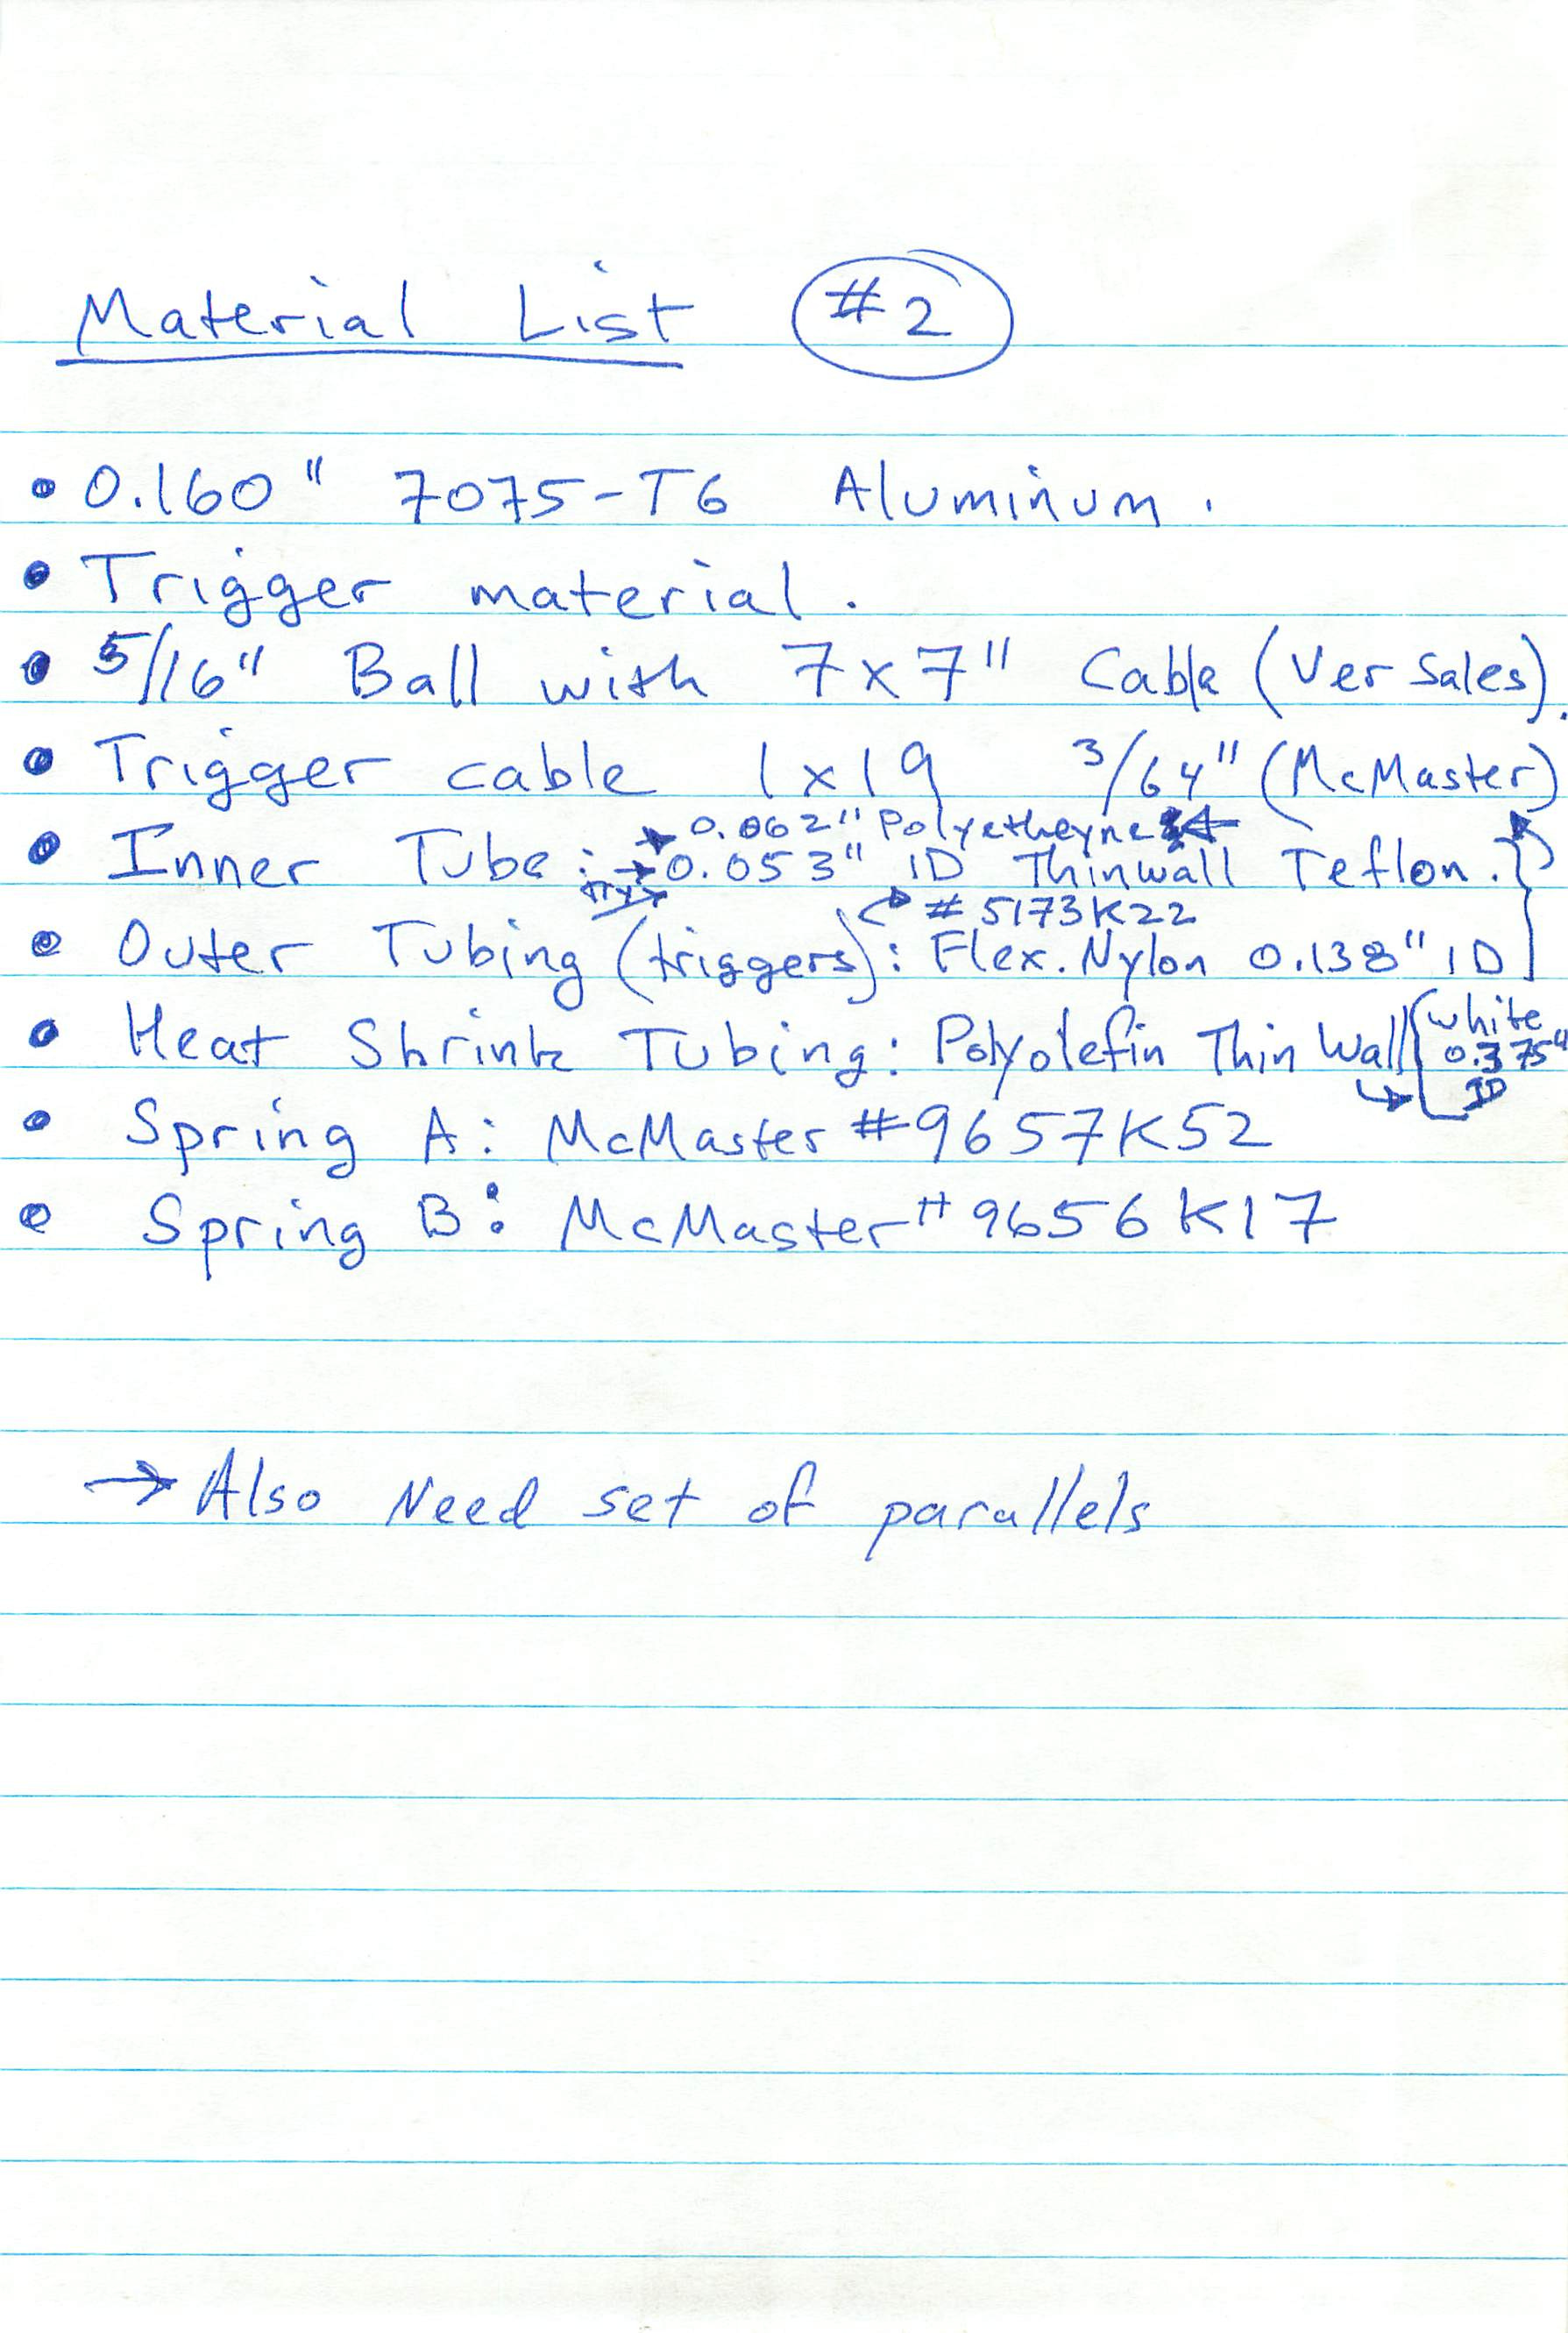 Material List #2
• 0.160" 7075-T6 Aluminum.
• Trigger material.
• 5/16" Ball with 7x7" Cable (Ver Sales).
• Trigger cable 1x19 3/64" (McMaster)
→ 0.062" Polyetheyne ←
• Inner Tube: → 0.053" ID Thinwall Teflon.
try →
# 5173K22
• Outer Tubing (triggers): Flex. Nylon 0.138" ID
• Heat Shrink Tubing: Polyolefin Thin Wall
white
0.375"
ID
• Spring A: McMaster #9657K52
• Spring B: McMaster #9656K17
→ Also Need set of parallels